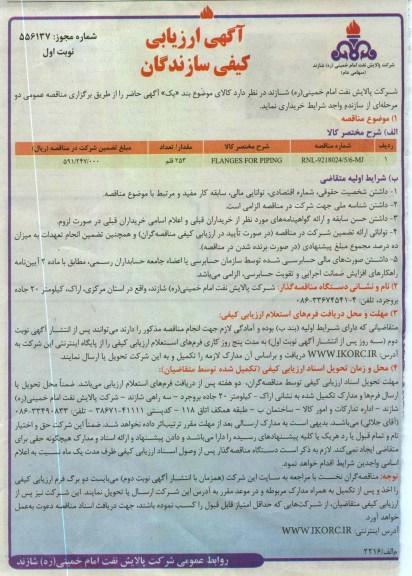 شماره مجوز: ۵۵۶۱۳۷
نوبت اول
آگهی ارزیابی
کیفی سازندگان
شرکت پالایش نفت امام خمینی (ره) شازند
(سهامی عام)
شرکت پالایش نفت امام خمینی(ره) شازند در نظر دارد کالای موضوع بند «یک» آگهی حاضر را از طریق برگزاری مناقصه عمومی دو
مرحله‌ای از سازنده واجد شرایط خریداری نماید.
۱) موضوع مناقصه
الف) شرح مختصر کالا
ردیف شماره مناقصه شرح مختصر کالا مقدار/ تعداد مبلغ تضمین شرکت در مناقصه (ریال)
۱ RNL-9218024/5/6-MJ FLANGES FOR PIPING ۲۵۳ قلم ۵۹۱/۲۴۷/۰۰۰
ب) شرایط اولیه متقاضی
۱- داشتن شخصیت حقوقی، شماره اقتصادی، توانایی مالی، سابقه کار مفید و مرتبط با موضوع مناقصه.
۲- داشتن شناسه ملی جهت شرکت در مناقصه الزامی است.
۳- داشتن حسن سابقه و ارائه گواهینامه‌های مورد نظر از خریداران قبلی و اعلام اسامی خریداران قبلی در صورت لزوم.
۴- توانائی ارائه تضمین شرکت در مناقصه (در صورت تأیید در ارزیابی کیفی مناقصه‌گران) و همچنین تضمین انجام تعهدات به میزان
ده درصد مجموع مبلغ پیشنهادی (در صورت برنده شدن در مناقصه).
۵- داشتن صورت‌های مالی حسابرسی شده توسط سازمان حسابرسی یا اعضاء جامعه حسابداران رسمی، مطابق با ماده ۲ آیین‌نامه
راهکارهای افزایش ضمانت اجرایی و تقویت حسابرسی، الزامی می‌باشد.
۲) نام و نشانی دستگاه مناقصه‌گذار: شرکت پالایش نفت امام خمینی(ره) شازند، واقع در استان مرکزی، اراک، کیلومتر ۲۰ جاده
بروجرد، تلفن: ۴-۳۳۶۷۴۵۴۱-۰۸۶
۳) مهلت و محل دریافت فرم‌های استعلام ارزیابی کیفی:
متقاضیانی که دارای شرایط اولیه (بند ب) بوده و آمادگی لازم جهت انجام مناقصه مذکور را دارند می‌توانند پس از انتشار آگهی نوبت
دوم (سه روز پس از انتشار آگهی نوبت اول) به مدت پنج روز کاری فرم‌های استعلام ارزیابی کیفی را از پایگاه اینترنتی این شرکت به
آدرس: WWW.IKORC.IR دریافت و براساس آن مدارک لازمه را تکمیل و به این شرکت تحویل یا ارسال نمایند.
۴) محل و زمان تحویل اسناد ارزیابی کیفی (تکمیل شده توسط متقاضیان):
مهلت تحویل اسناد ارزیابی کیفی توسط مناقصه‌گران، دو هفته پس از دریافت فرم‌های استعلام ارزیابی می‌باشد. ضمناً محل تحویل یا
ارسال فرم‌ها و مدارک تکمیل شده به نشانی اراک - کیلومتر ۲۰ جاده بروجرد - سه راهی شازند - شرکت پالایش نفت امام خمینی(ره)
شازند - اداره تدارکات و امور کالا - ساختمان ب - طبقه همکف اتاق ۱۱۸ - کدپستی ۴۱۱۱۱-۳۸۶۷۱ - تلفن: ۳۳۴۹۰۸۳۳-۰۸۶
(آقای جلالی) می‌باشد. بدیهی است به مدارک ارسالی بعد از مهلت مقرر ترتیب‌اثر داده نخواهد شد. ضمناً این شرکت حق و اختیار
تام و تمام قبول یا رد هریک یا کلیه پیشنهادهای رسیده را دارا می‌باشد و دادن پیشنهاد و ارائه اسناد و مدارک هیچگونه حقی برای
متقاضی ایجاد نمی‌کند. لازم به ذکر است دستگاه مناقصه‌گذار پس از وصول اسناد ارزیابی کیفی ظرف مدت یک ماه نسبت به اعلام
اسامی واجدین شرایط اقدام خواهد نمود.
توجه: مناقصه‌گران نخست با مراجعه به سایت این شرکت (همزمان با انتشار آگهی نوبت دوم) می‌بایست دو برگ فرم ارزیابی کیفی
را اخذ و پس از تکمیل به همراه مدارک مربوطه و در موعد مقرر به آدرس این شرکت ارسال یا تحویل نمایند. این شرکت نیز پس از
ارزیابی کیفی متقاضیان، از شرکت‌هایی که حداقل امتیاز قابل قبول را کسب نموده باشند، جهت دریافت اسناد مناقصه دعوت به‌عمل
خواهد آورد.
آدرس اینترنتی: WWW.IKORC.IR
م‌الف/۲۲۱۶
روابط عمومی شرکت پالایش نفت امام خمینی (ره) شازند